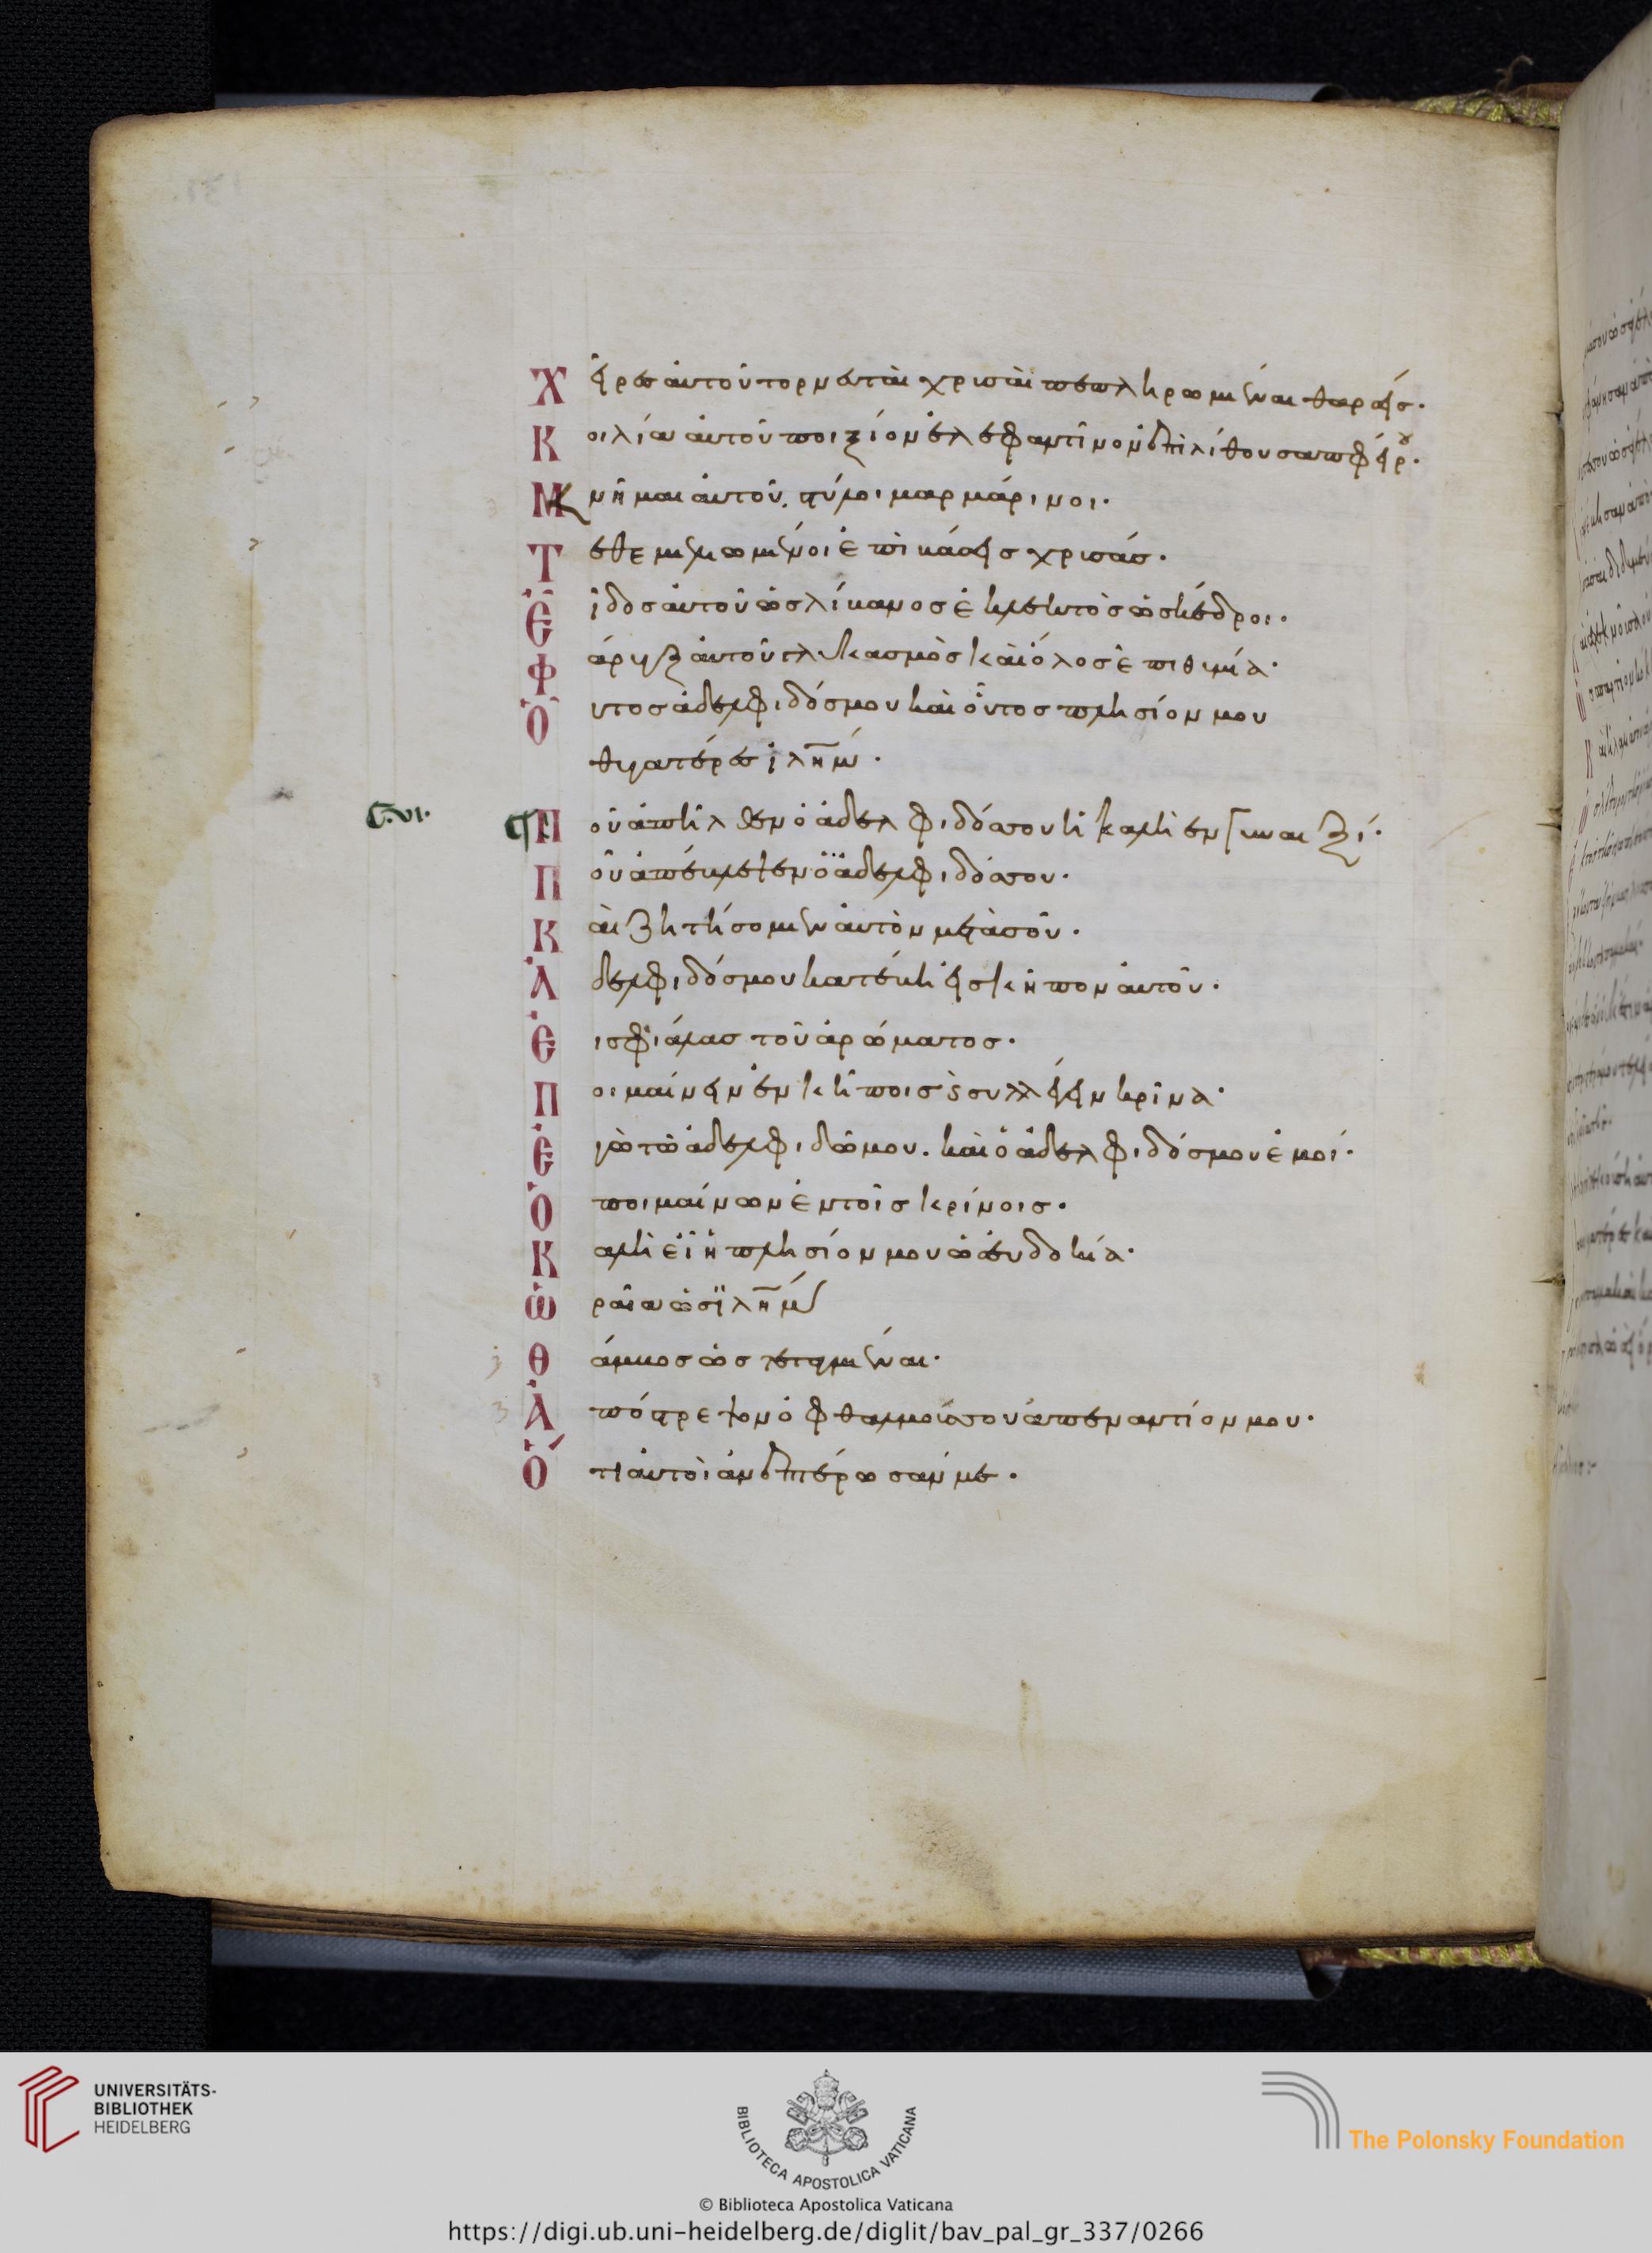 Χεῖρες αὐτοῦ τορνευταὶ χρυσαῖ πεπληρωμέναι θαρσεῖς·
Κοιλία αὐτοῦ πυξίον ἐλεφάντινον ἐπὶ λίθου σαπφείρου·
Κνῆμαι αὐτοῦ, στύλοι μαρμάρινοι·
Τεθεμελιωμένοι ἐπὶ βάσεις χρυσᾶς·
Εἶδος αὐτοῦ ὡς λίβανος ἐκλεκτὸς ὡς κέδροι·
Φάρυγξ αὐτοῦ γλυκασμὸς καὶ ὅλος ἐπιθυμία·
Οὗτος ἀδελφιδός μου καὶ οὗτος πλησίον μου
θυγατέρες ἰλημ·
ϛ. νι.
Ποῦ ἀπῆλθεν ὁ ἀδελφιδός σου ἡ καλὴ ἐν γυναιξί·
Ποῦ ἀπέβλεψεν ὁ ἀδελφιδός σου·
Καὶ ζητήσομεν αὐτὸν μετὰ σοῦ·
Ἀδελφιδός μου κατέβη εἰς κῆπον αὐτοῦ·
Εἰς φιάλας τοῦ ἀρώματος·
Ποιμαίνειν ἐν κήποις καὶ συλλέγειν κρίνα·
Ἐγὼ τῶ ἀδελφιδῶ μου. καὶ ὁ ἀδελφιδός μου ἐμοί·
Ὁ ποιμαίνων ἐν τοῖς κρίνοις·
Καλὴ εἶ ἡ πλησίον μου ὡς εὐδοκία·
Ὡραία ὡς ἰλημ
Θάμβος ὡς τεταγμέναι·
Ἀπόστρεψον ὀφθαλμούς σου ἀπεναντίον μου·
Ὅτι αὐτοὶ ἀνεπτέρωσάν με·
UNIVERSITÄTS-
BIBLIOTHEK
HEIDELBERG
BIBLIOTECA APOSTOLICA VATICANA
The Polonsky Foundation
© Biblioteca Apostolica Vaticana
https://digi.ub.uni-heidelberg.de/diglit/bav_pal_gr_337/0266